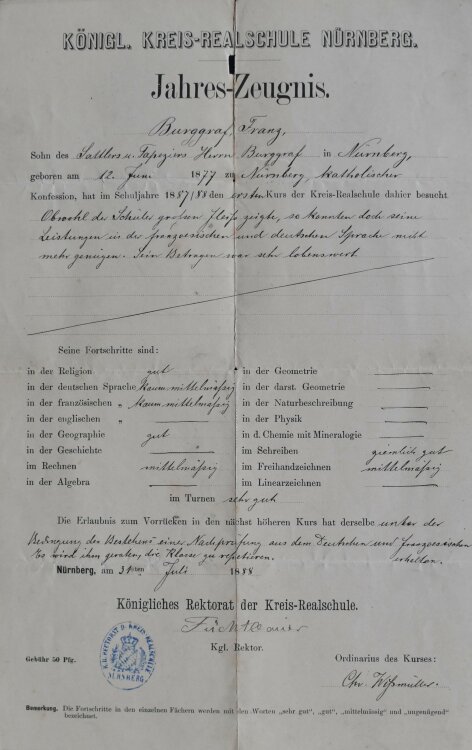 KÖNIGL. KREIS-REALSCHULE NÜRNBERG.
Jahres-Zeugnis.
Burggraf, Franz,
Sohn des Sattlers u. Tapeziers Herrn Burggraf in Nürnberg,
geboren am 12. Juni 1877 zu Nürnberg, katholischer
Konfession, hat im Schuljahre 1887/88 den ersten Kurs der Kreis-Realschule dahier besucht
Obwohl der Schüler grossen Fleiss zeigte, so konnten doch seine
Leistungen in der französischen und deutschen Sprache nicht
mehr genügen. Sein Betragen war sehr lobenswert.
Seine Fortschritte sind:
in der Religion gut
in der deutschen Sprache kaum mittelmässig
in der französischen „ kaum mittelmässig
in der englischen „
in der Geographie gut
in der Geschichte „
im Rechnen mittelmässig
in der Algebra
in der Geometrie
in der darst. Geometrie
in der Naturbeschreibung
in der Physik
in d. Chemie mit Mineralogie
im Schreiben ziemlich gut
im Freihandzeichnen mittelmässig
im Linearzeichnen
im Turnen sehr gut
Die Erlaubnis zum Vorrücken in den nächst höheren Kurs hat derselbe unter der
Bedingung des Bestehens einer Nachprüfung aus dem Deutschen und Französischen
Es wird ihm geraten, die Klasse zu repetieren. erhalten.
Nürnberg, am 31ten Juli 1888
Königliches Rektorat der Kreis-Realschule.
Kgl. Rektor.
Gebühr 50 Pfg.
K. B. REKTORAT D. KREIS REALSCHULE
NÜRNBERG
Ordinarius des Kurses:
Chr. Wissmüller.
Bemerkung. Die Fortschritte in den einzelnen Fächern werden mit den Worten „sehr gut", „gut", „mittelmässig" und „ungenügend"
bezeichnet.